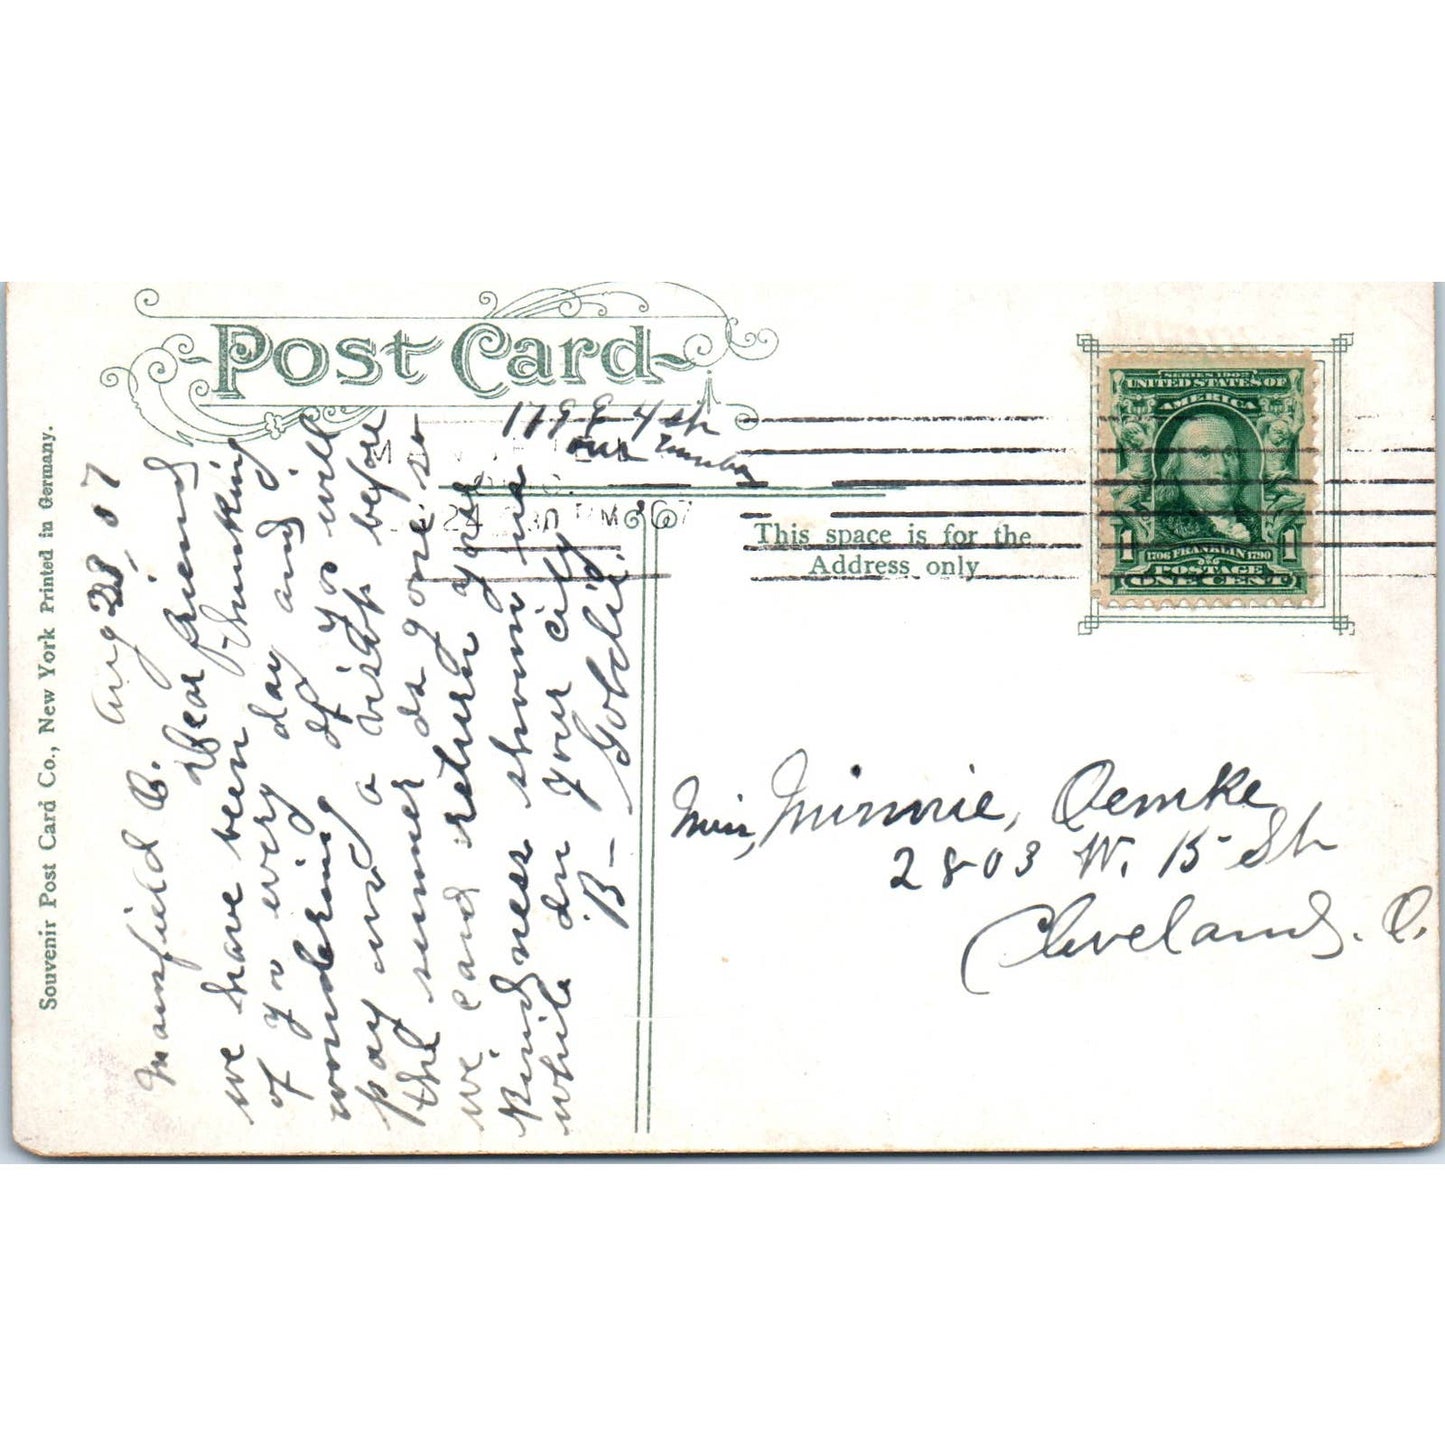 Post Card
119 E 4 St
our number
MANSFIELD
24 30 PM 07
This space is for the
Address only
SERIES 1902
UNITED STATES OF
AMERICA
1 1706 FRANKLIN 1790 1
POSTAGE
ONE CENT
Souvenir Post Card Co., New York Printed in Germany.
Mansfield O. Aug 23, 07
Dear friend
we have been thinking
of yo every day and
wondering if yo will
pay us a visit before
the summer is gone so
we can return your
kindness shown us
while in your city
B- Goldie.
Miss, Minnie, Oemke
2803 W. 15 St
Cleveland. O.